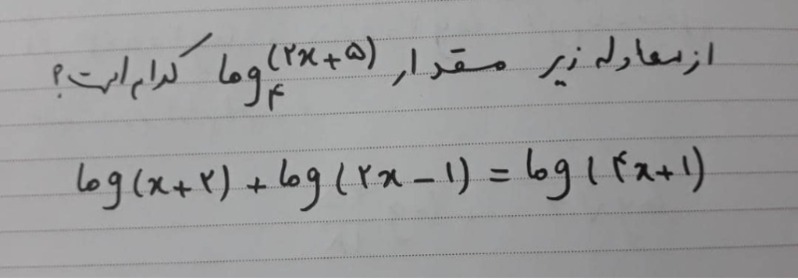 از معادله زیر مقدار log₄(۲x+۵) کدام است؟
log(x+۲) + log(۲x-۱) = log(۴x+۱)